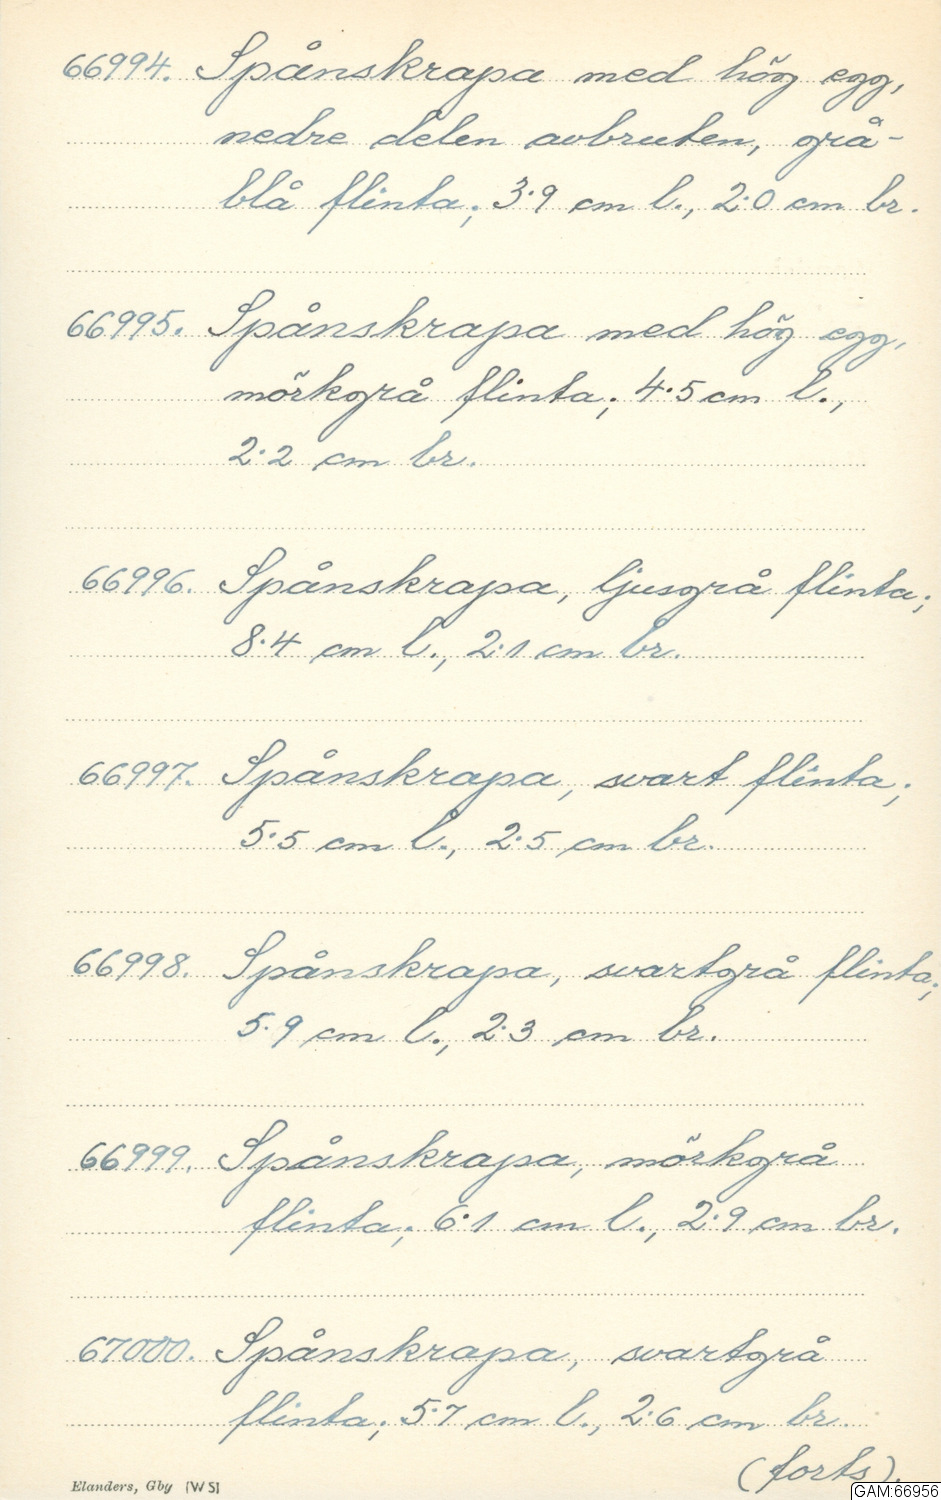 66994. Spånskrapa med hög egg,
nedre delen avbruten, grå-
blå flinta; 3·9 cm l., 2·0 cm br.
66995. Spånskrapa med hög egg,
mörkgrå flinta; 4·5 cm l.,
2·2 cm br.
66996. Spånskrapa, ljusgrå flinta;
8·4 cm l., 2·1 cm br.
66997. Spånskrapa, svart flinta;
5·5 cm l., 2·5 cm br.
66998. Spånskrapa, svartgrå flinta;
5·9 cm l., 2·3 cm br.
66999. Spånskrapa, mörkgrå
flinta; 6·1 cm l., 2·9 cm br.
67000. Spånskrapa, svartgrå
flinta; 5·7 cm l., 2·6 cm br.
(forts).
Elanders, Gby [W S]
GAM:66956